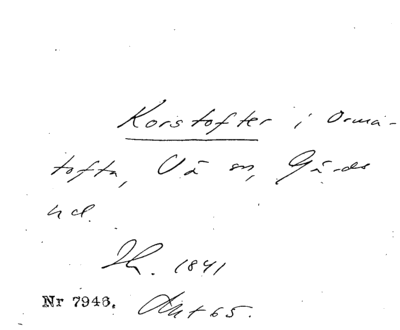 Korstofter i Orma-
tofta, Vä sn, Gärds
hd.
Lh. 1841
Nr 7946. Akt 65.